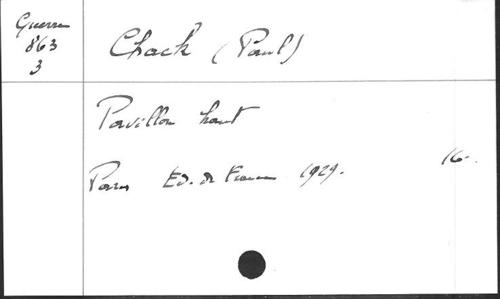 Guerre
863
3
Chack (Paul)
Pavillon haut
Paris Ed. de France 1929. 16.